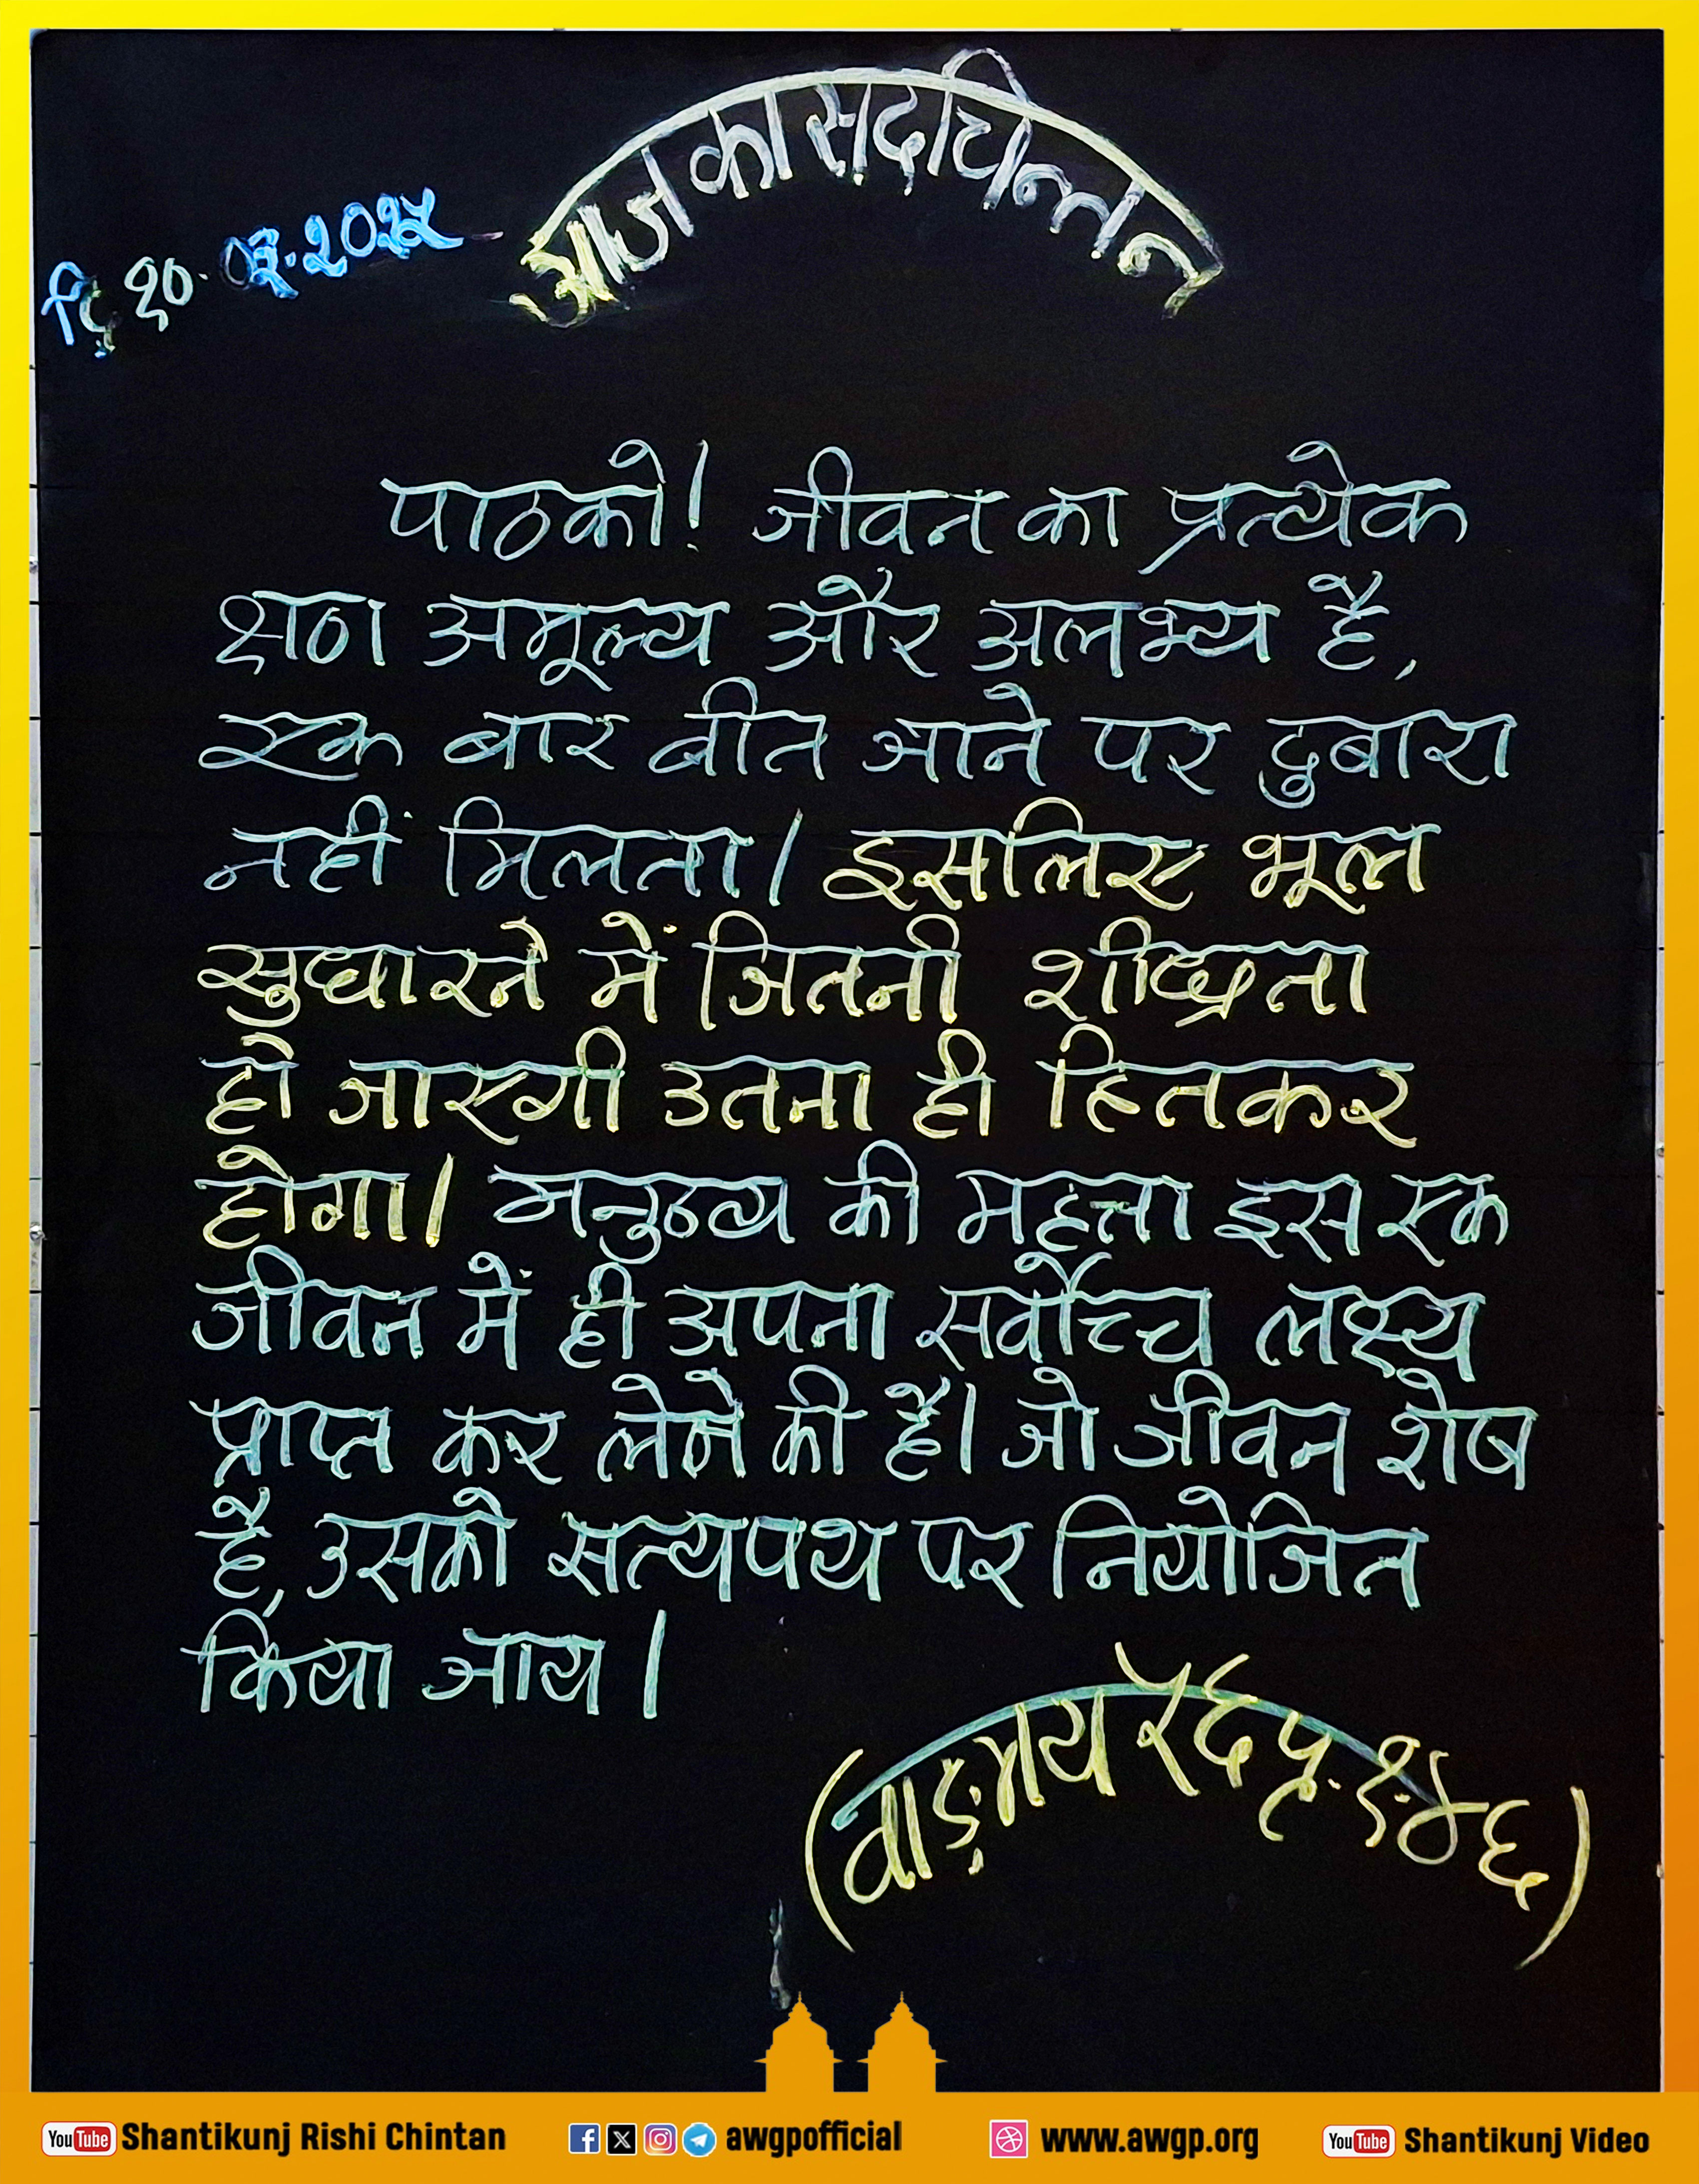 आज का सद्चिन्तन
दि १०.०३.२०२५
पाठको! जीवन का प्रत्येक
क्षण अमूल्य और अलभ्य है,
एक बार बीत जाने पर दुबारा
नहीं मिलता। इसलिए भूल
सुधारने में जितनी शीघ्रता
हो जाएगी उतना ही हितकर
होगा। मनुष्य की महत्ता इस एक
जीवन में ही अपना सर्वोच्च लक्ष्य
प्राप्त कर लेने की है। जो जीवन शेष
है, उसको सत्यपथ पर नियोजित
किया जाय।
(वाङ्मय ५६ पृ. १.४६)
YouTube Shantikunj Rishi Chintan awgpofficial www.awgp.org YouTube Shantikunj Video